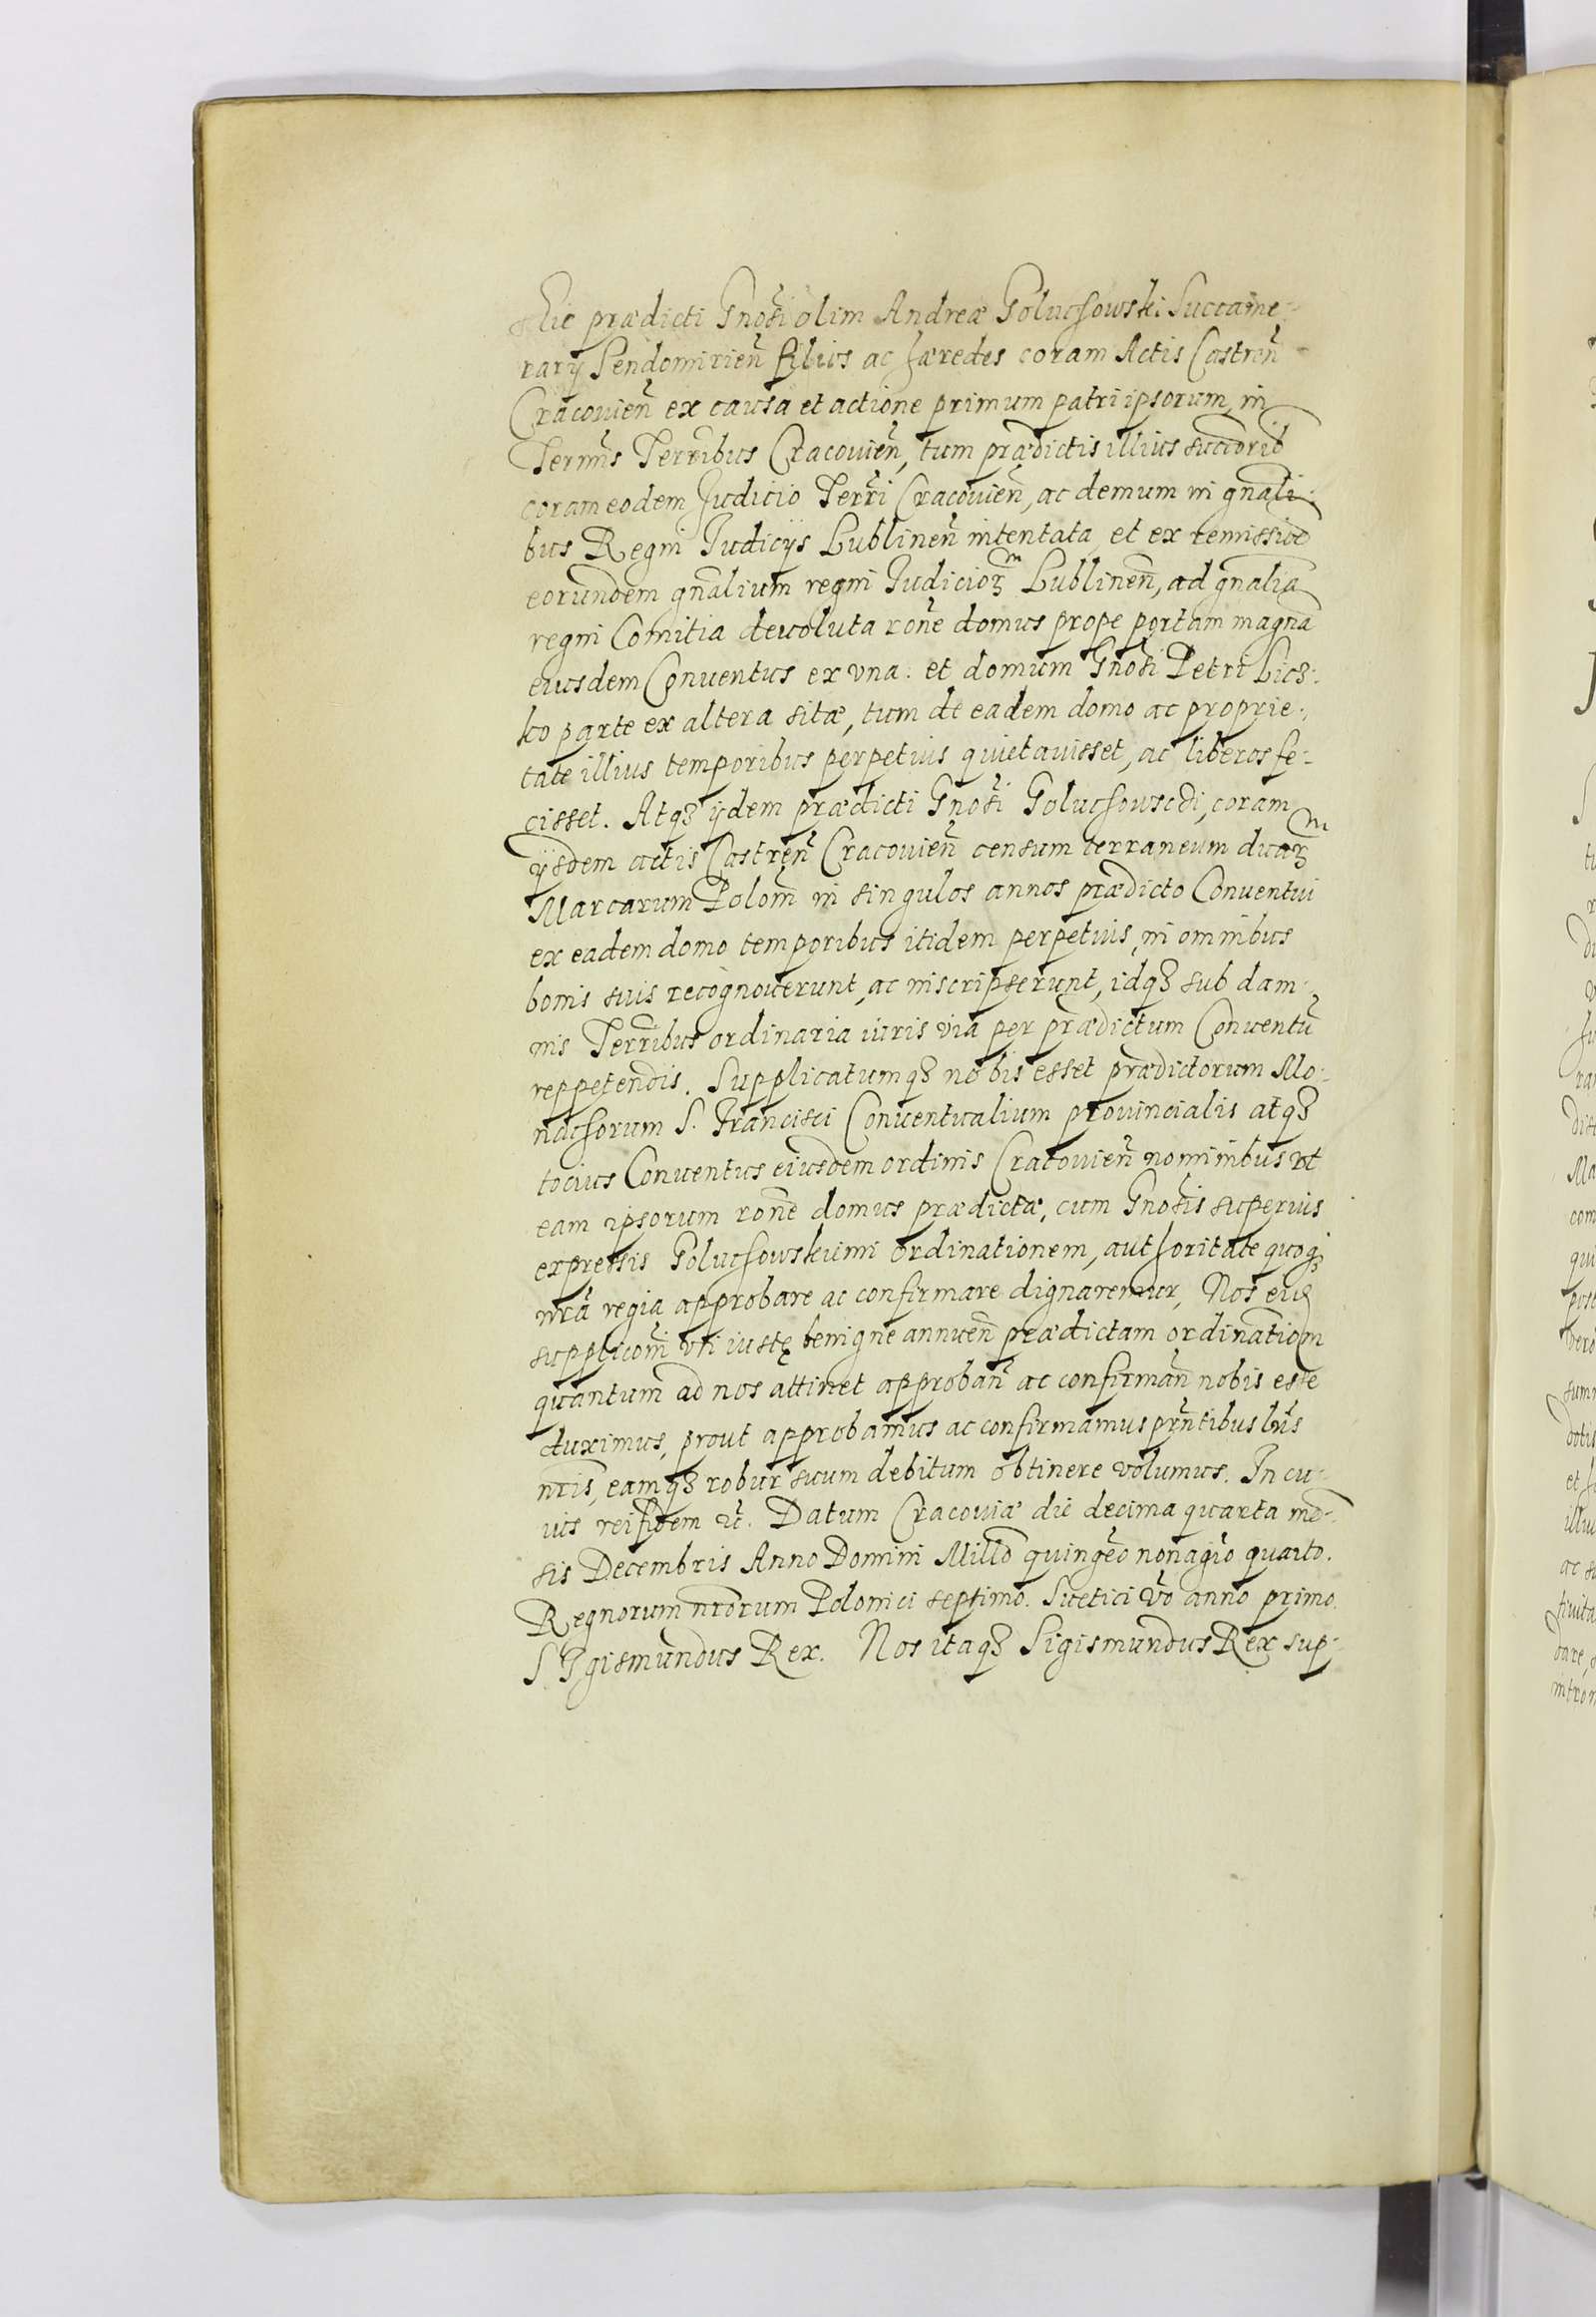 prædicti Gnosi olim Andreæ Goluchowski Succame-
rarÿ Sendomirien̄ filios ac hæredes coram Actis Castren̄
Cracouien̄ ex causa et actione primum patri ipsorum in
Termis Terribus Cracouien̄, tum prædictis illius succorib
coram eodem Judicio Terri Cracouien̄, ac demum in gnali-
bus Regni Judicÿs Lublinen̄ intentata, et ex remissioe
eorundem gnalium regni Judicioꝝ Lublinen̄, ad gnalia
regni Comitia deuoluta rone domus prope portam magnā
eiusdem Conuentus ex vna: et domum Gnosi Petri Licz-
ko parte ex altera sitæ, tum de eadem domo ac proprie-
tate illius temporibus perpetuis quietauisset, ac liberos fe-
cisset. Atqꝫ ÿdem prædicti Gnosi Goluchowscÿ, coram
ÿsdem actis Castren̄ Cracouien̄ censum terraneum duaꝝ
Marcarum Polon̄ in singulos annos prædicto Conuentui
ex eadem domo temporibus itidem perpetuis, in omnibus
bonis suis recognouerunt, ac inscripserunt, idqꝫ sub dam-
nis Terribus ordinaria iuris via per prædictum Conuentū
reppetendis. Supplicatumqꝫ nobis esset prædictorum Mo-
nachorum S. Francisci Conuentualium prouincialis atqꝫ
tocius Conuentus eiusdem ordinis Cracouien̄ nominibus vt
eam ipsorum rone domus prædictæ, cum Gnosis superius
expressis Goluchowskiimi ordinationem, authoritate quoqꝫ
nrā regia approbare ac confirmare dignaremur, Nos eius
suppliconi vti iustę benigne annuen̄ prædictam ordinationem
quantum ad nos attinet approban̄ ac confirman̄ nobis esse
duximus, prout approbamus ac confirmamus prntibus lris
nris, eamqꝫ robur suum debitum obtinere volumus. In cu-
ius rei fidem ꝛc. Datum Cracouiæ die decima quarta mē-
sis Decembris Anno Domini Millo quingeo nonagio quarto.
Regnorum nrorum Polonici septimo. Suetici vo anno primo.
SJgismundus Rex. Nos itaqꝫ Sigismundus Rex sup-